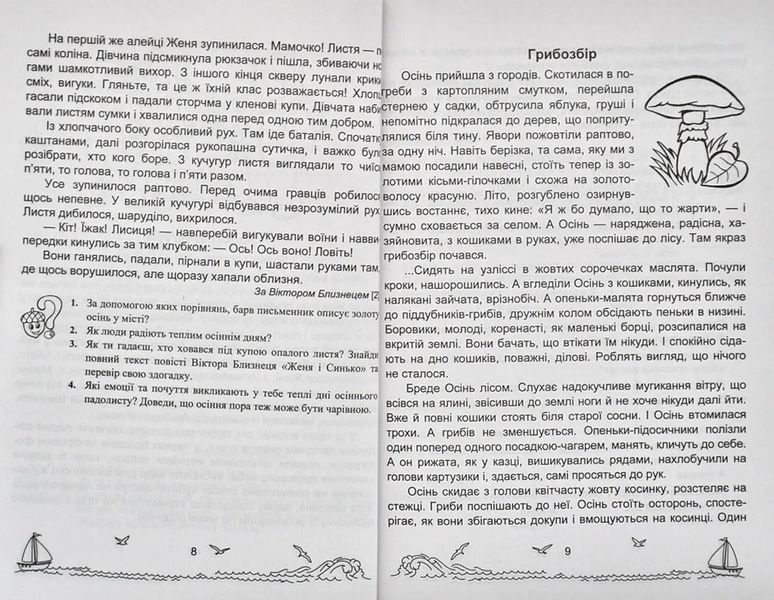 На першій же алейці Женя зупинилася. Мамочко! Листя —
самі коліна. Дівчина підсмикнула рюкзачок і пішла, збиваючи
гами шамкотливий вихор. З іншого кінця скверу лунали крики
сміх, вигуки. Гляньте, та це ж їхній клас розважається! Хлопц
гасали підскоком і падали сторчма у кленові купи. Дівчата наби
вали листям сумки і хвалилися одна перед одною тим добром.
Із хлопчачого боку особливий рух. Там іде баталія. Спочатк
каштанами, далі розгорілася рукопашна сутичка, і важко бул
розібрати, хто кого боре. З кучугур листя виглядали то чиїс
п'яти, то голова, то голова і п'яти разом.
Усе зупинилося раптово. Перед очима гравців робилос
щось непевне. У великій кучугурі відбувався незрозумілий рух
Листя дибилося, шаруділо, вихрилося.
— Кіт! Їжак! Лисиця! — навперебій вигукували воїни і навви
передки кинулись за тим клубком: — Ось! Ось воно! Ловіть!
Вони ганялись, падали, пірнали в купи, шастали руками там,
де щось ворушилося, але щоразу хапали облизня.
За Віктором Близнецем [2]
1. За допомогою яких порівнянь, барв письменник описує золоту
осінь у місті?
2. Як люди радіють теплим осіннім дням?
3. Як ти гадаєш, хто ховався під купою опалого листя? Знайди
повний текст повісті Віктора Близнеця «Женя і Синько» та
перевір свою здогадку.
4. Які емоції та почуття викликають у тебе теплі дні осіннього
падолисту? Доведи, що осіння пора теж може бути чарівною.
8
Грибозбір
Осінь прийшла з городів. Скотилася в по-
греби з картопляним смутком, перейшла
стернею у садки, обтрусила яблука, груші і
непомітно підкралася до дерев, що попритулялися біля тину. Явори пожовтіли раптово,
за одну ніч. Навіть берізка, та сама, яку ми з
мамою посадили навесні, стоїть тепер із зо-
лотими кісьми-гілочками і схожа на золото-
волосу красуню. Літо, розгублено озирнув-
шись востаннє, тихо кине: «Я ж бо думало, що то жарти», — і
сумно сховається за селом. А Осінь — наряджена, радісна, ха-
зяйновита, з кошиками в руках, уже поспішає до лісу. Там якраз
грибозбір почався.
...Сидять на узліссі в жовтих сорочечках маслята. Почули
кроки, нашорошились. А вгледіли Осінь з кошиками, кинулись, як
налякані зайчата, врізнобіч. А опеньки-малята горнуться ближче
до піддубників-грибів, дружнім колом обсідають пеньки в низині.
Боровики, молоді, коренасті, як маленькі борці, розсипалися на
вкритій землі. Вони бачать, що втікати їм нікуди. І спокійно сіда-
ють на дно кошиків, поважні, ділові. Роблять вигляд, що нічого
не сталося.
Бреде Осінь лісом. Слухає надокучливе мугикання вітру, що
всівся на ялині, звісивши до землі ноги й не хоче нікуди далі йти.
Вже й повні кошики стоять біля старої сосни. І Осінь втомилася
трохи. А грибів не зменшується. Опеньки-підосичники полізли
один поперед одного посадкою-чагарем, манять, кличуть до себе.
А он рижата, як у казці, вишикувались рядами, нахлобучили на
голови картузики і, здається, самі просяться до рук.
Осінь скидає з голови квітчасту жовту косинку, розстеляє на
стежці. Гриби поспішають до неї. Осінь стоїть осторонь, спосте-
рігає, як вони збігаються докупи і вмощуються на косинці. Один
9